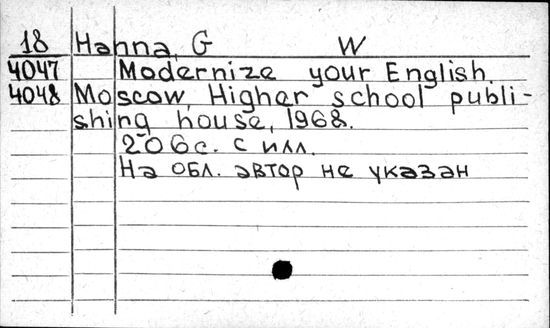 18 Hanna, G W
4047 Modernize your English.
4048 Moscow, Higher school publi-
shing house, 1968.
206с. с илл.
На обл. автор не указан